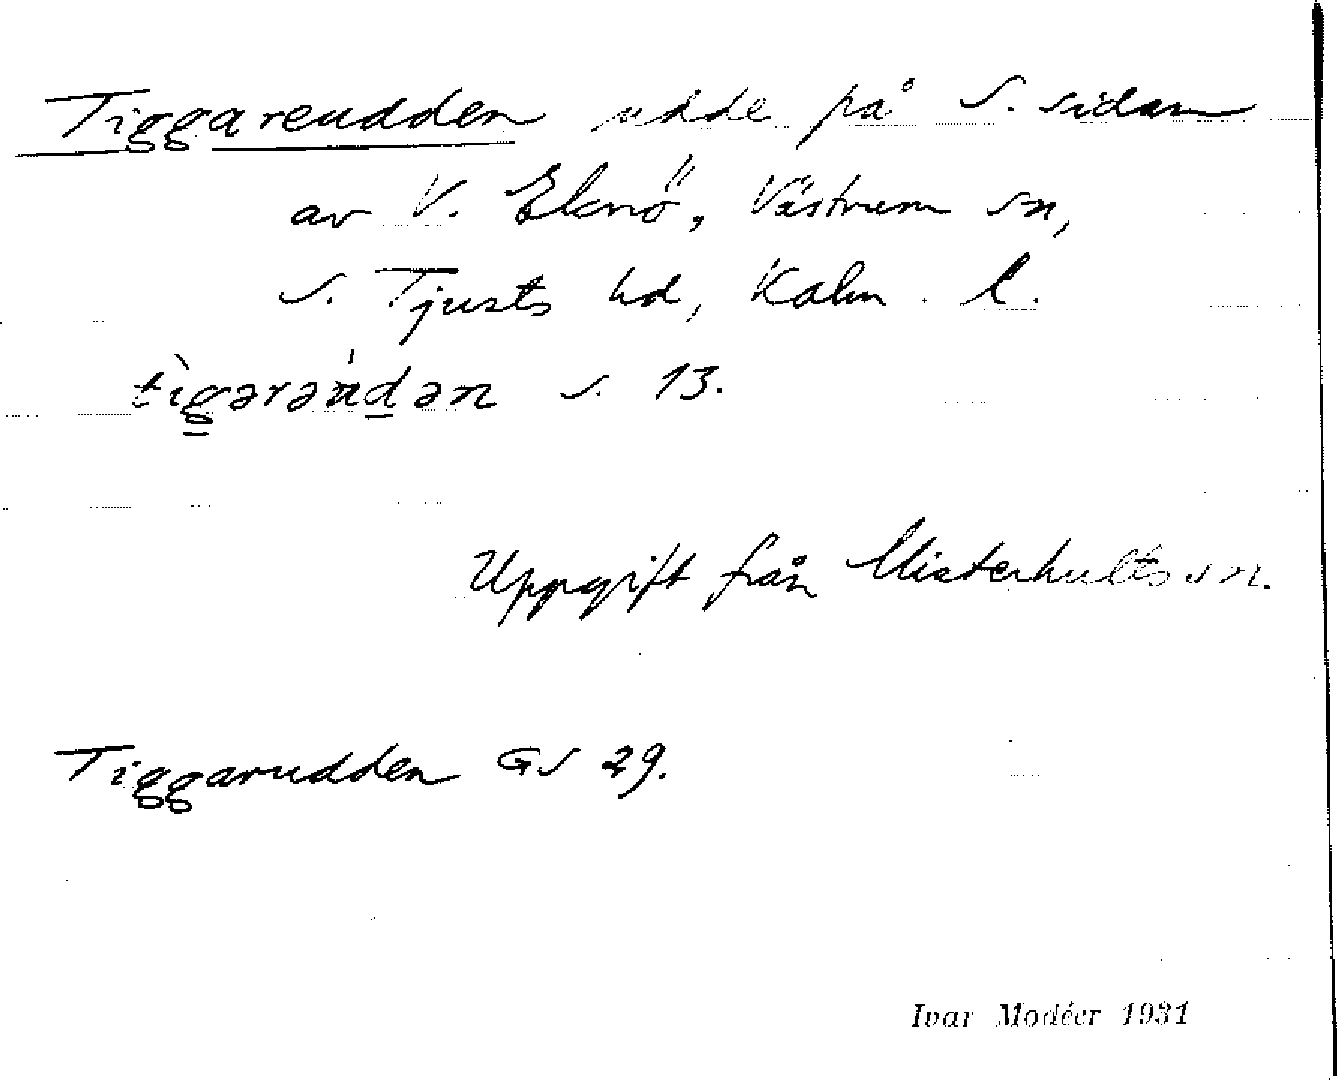 Tiggareudden udde på S. sidan
av V. Eknö, Västrum sn,
S. Tjusts hd, Kalm. l.
s. 13.
Uppgift från Misterhults sn.
Tiggarudden GS 29.
Ivar Modéer 1931